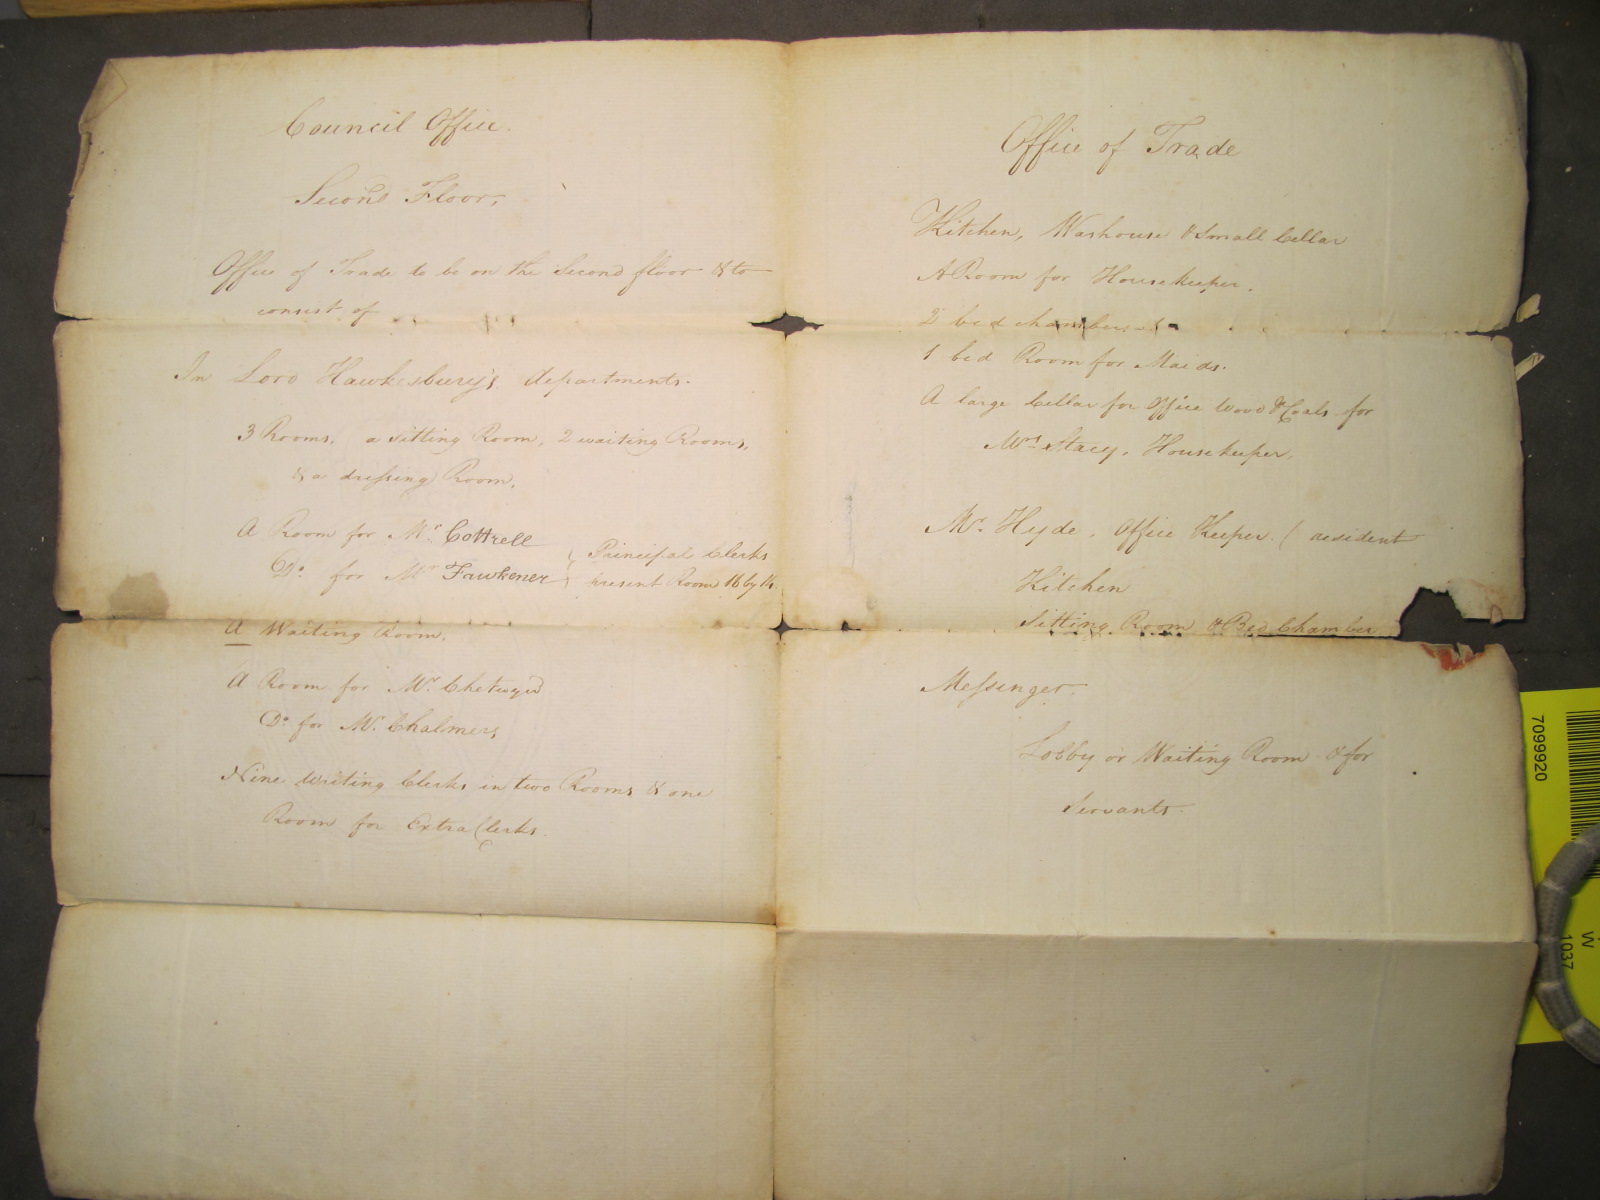 Council Office.
Second Floor,
Office of Trade to be on the Second floor & to
consist of
In Lord Hawkesbury's departments.
3 Rooms, a Sitting Room, 2 waiting Rooms,
& a dressing Room.
A Room for Mr. Cottrell
Do. for Mr Fawkener
Principal Clerks
present Room 16 by 16
A Waiting Room.
A Room for Mr. Chetwynd
Do. for Mr. Chalmers
Nine Writing Clerks in two Rooms & one
Room for Extra Clerks.
Office of Trade
Kitchen, Washouse & Small Cellar
A Room for Housekeeper.
2 bed chambers
1 bed Room for Maids.
A large Cellar for Office Wood & Coals for
Mrs. Stacy, Housekeeper.
Mr. Hyde, Office Keeper. ( resident
Kitchen
Sitting Room & Bed Chamber
Messinger.
Lobby or Waiting Room & for
Servants.
7099920
W
1037